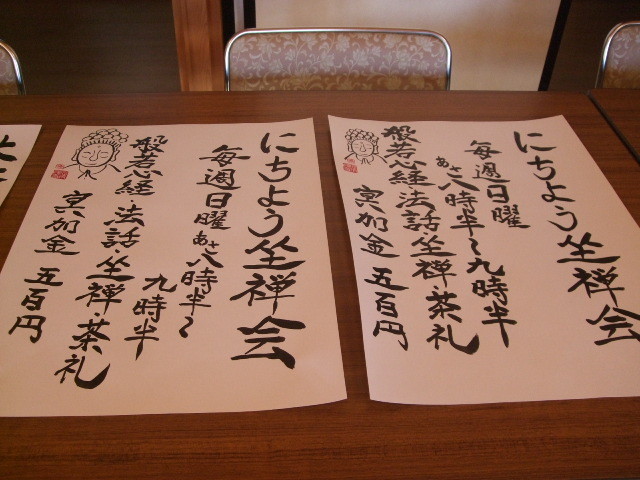 にちよう坐禅会
毎週日曜
あさ八時半〜九時半
般若心経 法話 坐禅 茶礼
冥加金 五百円
にちよう坐禅会
毎週日曜 あさ八時半〜
九時半
般若心経・法話 坐禅・茶礼
冥加金 五百円